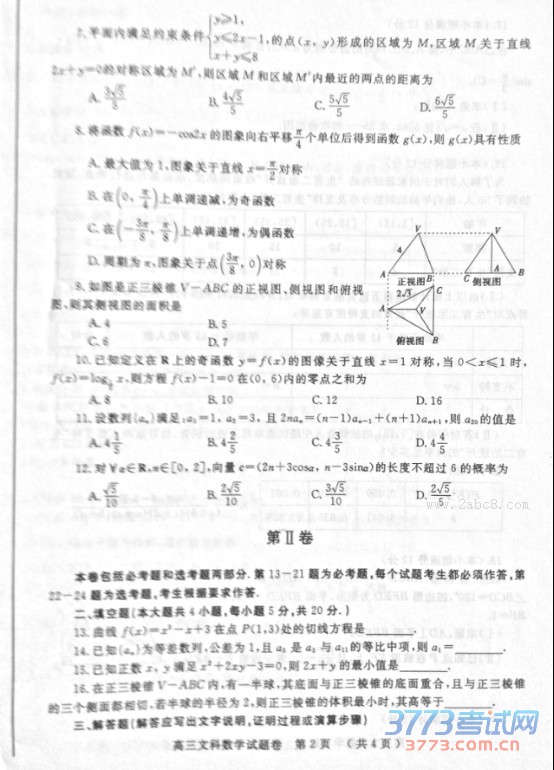 7.平面内满足约束条件{y≥1, y≤2x−1, x+y≤8 的点(x, y)形成的区域为 M,区域 M 关于直线
2x+y=0的对称区域为 M′,则区域 M 和区域 M′内最近的两点的距离为
A. 3√5/5 B. 4√5/5 C. 5√5/5 D. 6√5/5
8.将函数 f(x)=−cos2x 的图象向右平移 π/4 个单位后得到函数 g(x),则 g(x)具有性质
A.最大值为 1,图象关于直线 x=π/2 对称
B.在(0, π/4)上单调递减,为奇函数
C.在(−3π/8, π/8)上单调递增,为偶函数
D.周期为 π,图象关于点(3π/8, 0)对称
V V
4
A B C A B
正视图 侧视图
2√3 C
A V
B
俯视图
9.如图是正三棱锥 V−ABC 的正视图、侧视图和俯视
图、则其侧视图的面积是
A. 4 B. 5
C. 6 D. 7
10.已知定义在 R 上的奇函数 y=f(x)的图像关于直线 x=1 对称,当 0<x≤1 时,
x,则方程 f(x)−1=0 在(0, 6)内的零点之和为
A. 8 B. 10 C. 12 D. 16
11.设数列{aₙ}满足:a₁=1, a₂=3, 且 2naₙ=(n−1)aₙ₋₁+(n+1)aₙ₊₁,则 a₂₀ 的值是
A. 4 1/5 B. 4 2/5 C. 4 3/5 D. 4 4/5
12.对∀α∈R,n∈[0, 2],向量 c=(2n+3cosα, n−3sinα)的长度不超过 6 的概率为
A. √5/10 B. 2√5/10 C. 3√5/10 D. 2√5/5
www.2abc8.com
第Ⅱ卷
本卷包括必考题和选考题两部分.第 13−21 题为必考题,每个试题考生都必须作答,第
22−24 题为选考题,考生根据要求作答.
二、填空题(本大题共 4 小题,每小题 5 分,共 20 分.)
13.曲线 f(x)=x³−x+3 在点 P(1,3)处的切线方程是
14.已知{aₙ}为等差数列,公差为 1,且 a₅ 是 a₃ 与 a₁₁ 的等比中项,则 a₁=
15.已知正数 x, y 满足 x²+2xy−3=0,则 2x+y 的最小值是
16.在正三棱锥 V−ABC 内,有一半球,其底面与正三棱锥的底面重合,且与正三棱锥
的三个侧面都相切,若半球的半径为 2,则正三棱锥的体积最小时,其高等于
三、解答题(解答应写出文字说明,证明过程或演算步骤)
高三文科数学试题卷 第 2 页 (共 4 页)
3773考试网
3773.com.cn